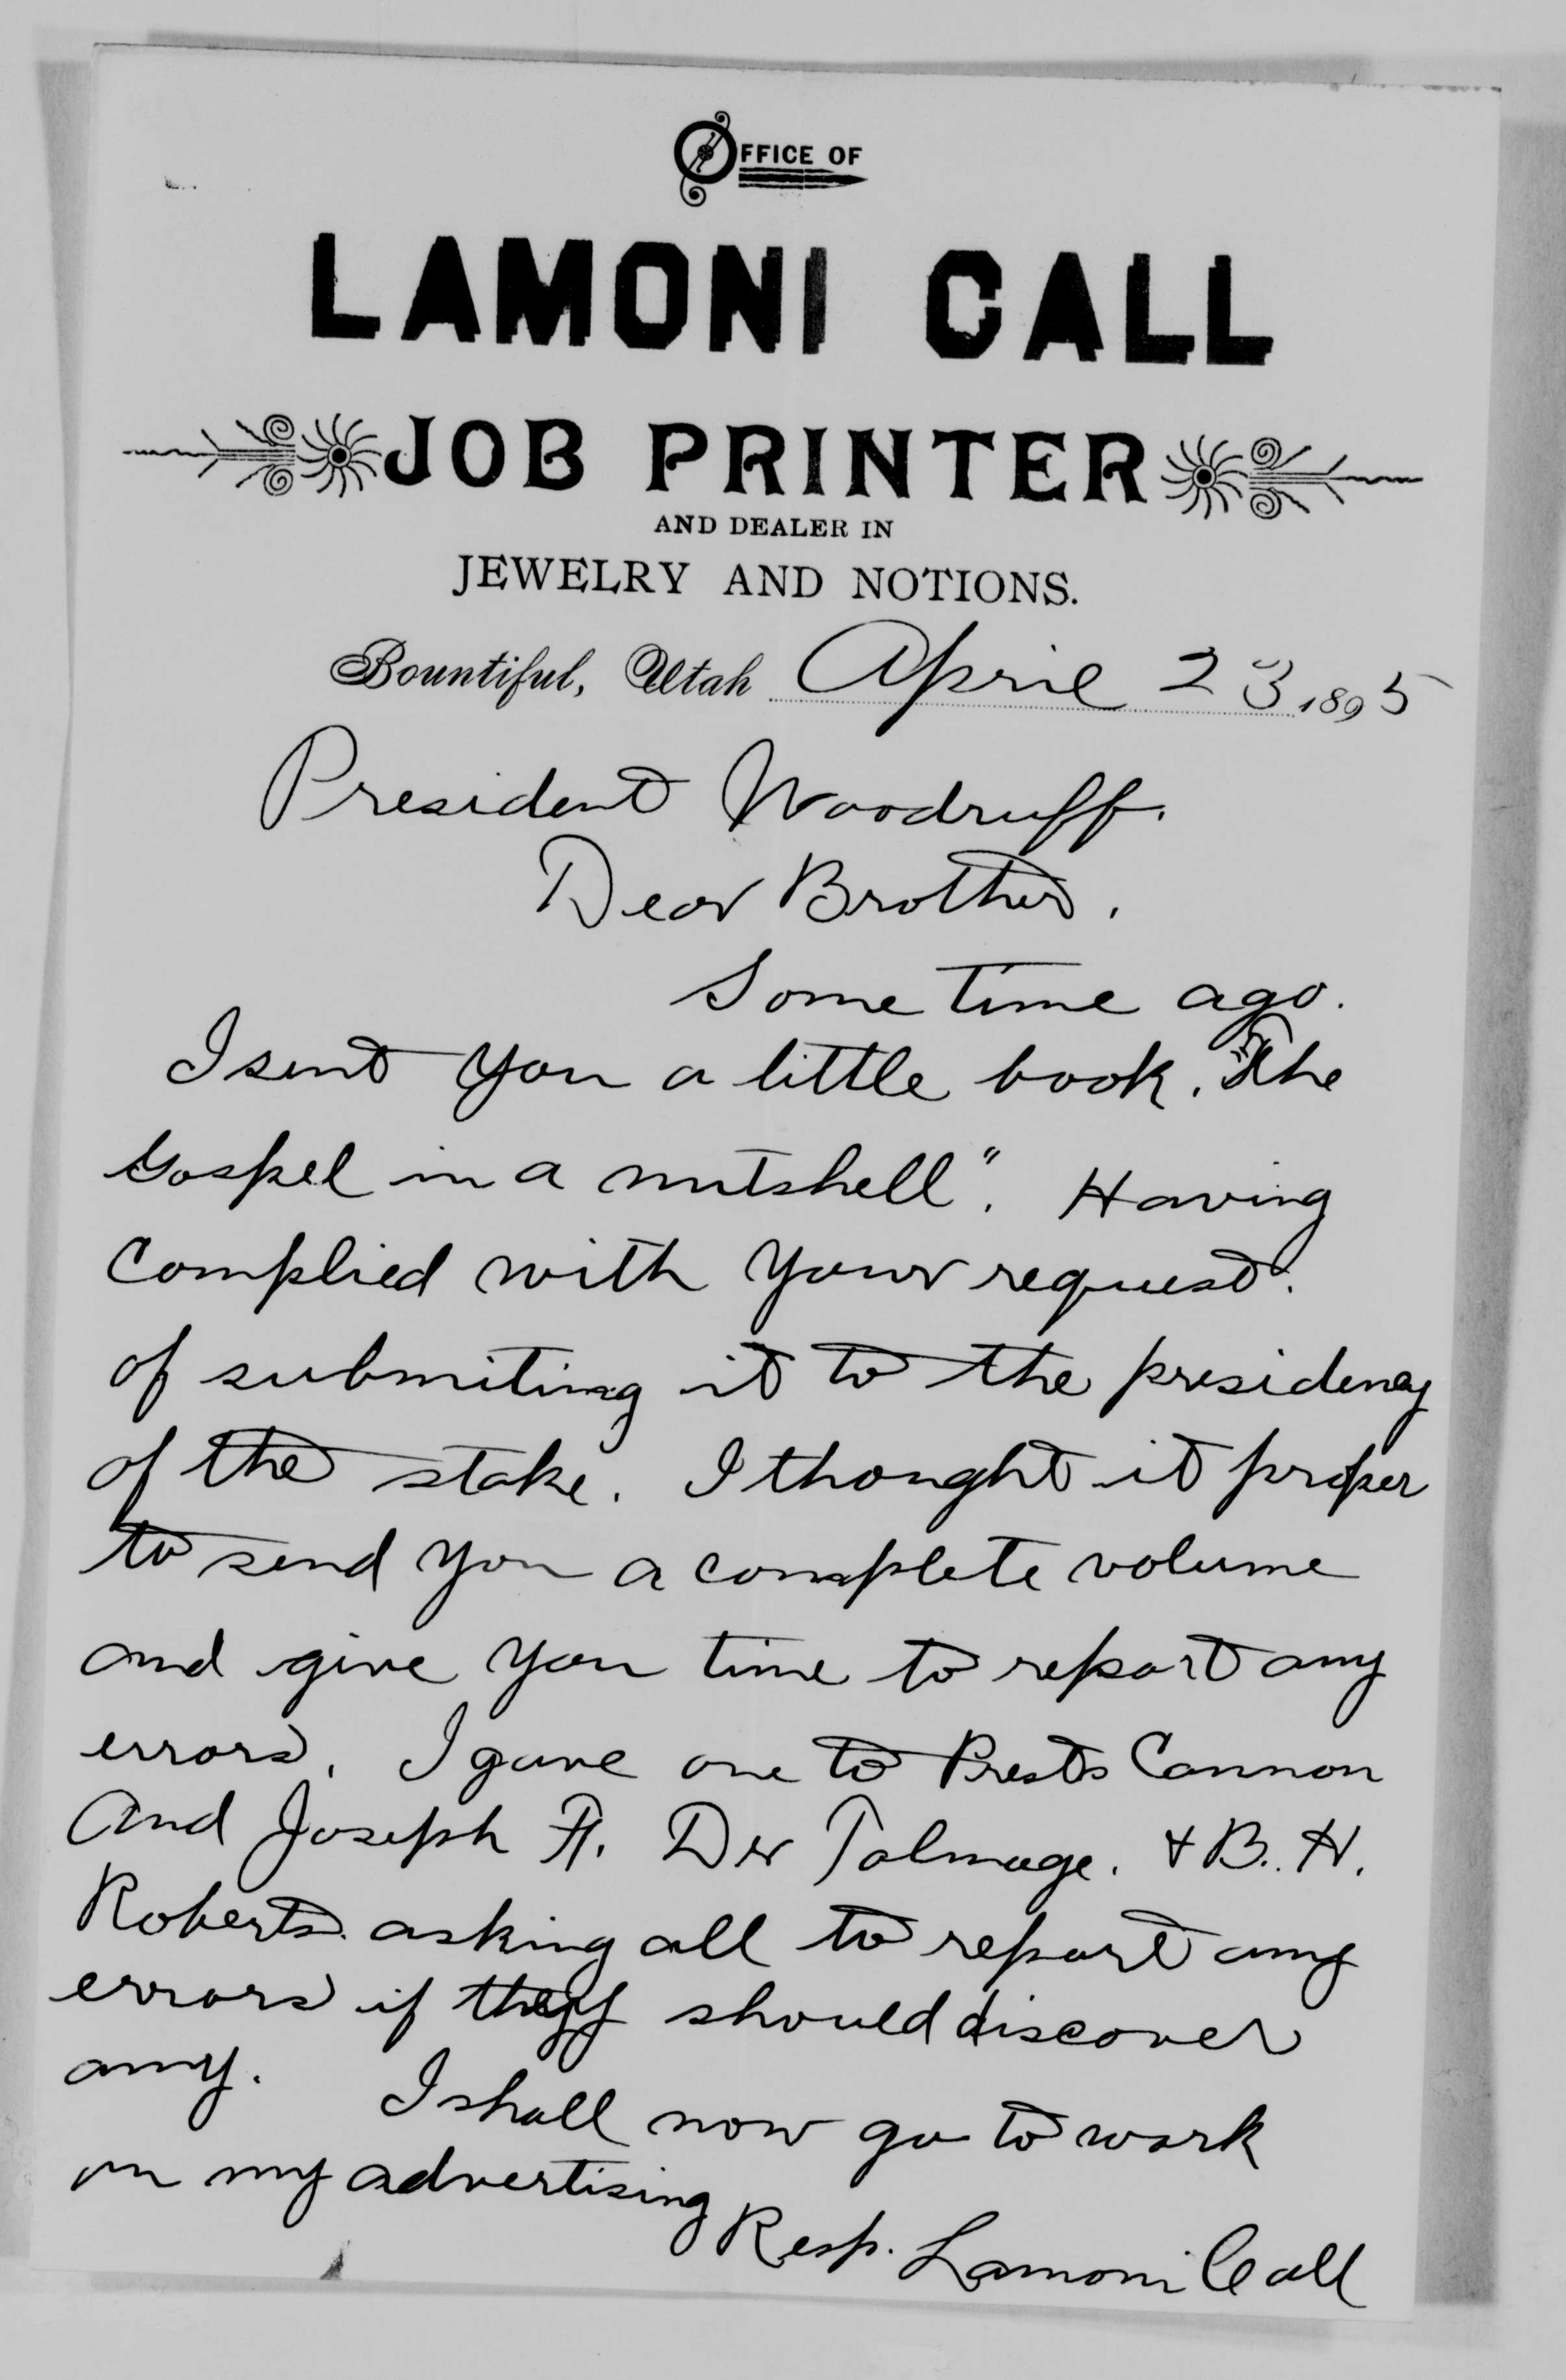 OFFICE OF
LAMONI CALL
JOB PRINTER
AND DEALER IN
JEWELRY AND NOTIONS.
Bountiful, Utah April 23 1895
President Woodruff.
Dear Brother.
Some time ago.
I sent you a little book. "The
Gospel in a nutshell". Having
complied with your request.
of submiting it to the presidency
of the stake. I thought it proper
to send you a complete volume
and give you time to report any
errors. I gave one to Prests Cannon
And Joseph F. Dr Talmage. & B. H.
Roberts asking all to report any
errors if they should discover
any. I shall now go to work
on my advertising
Resp. Lamoni Call